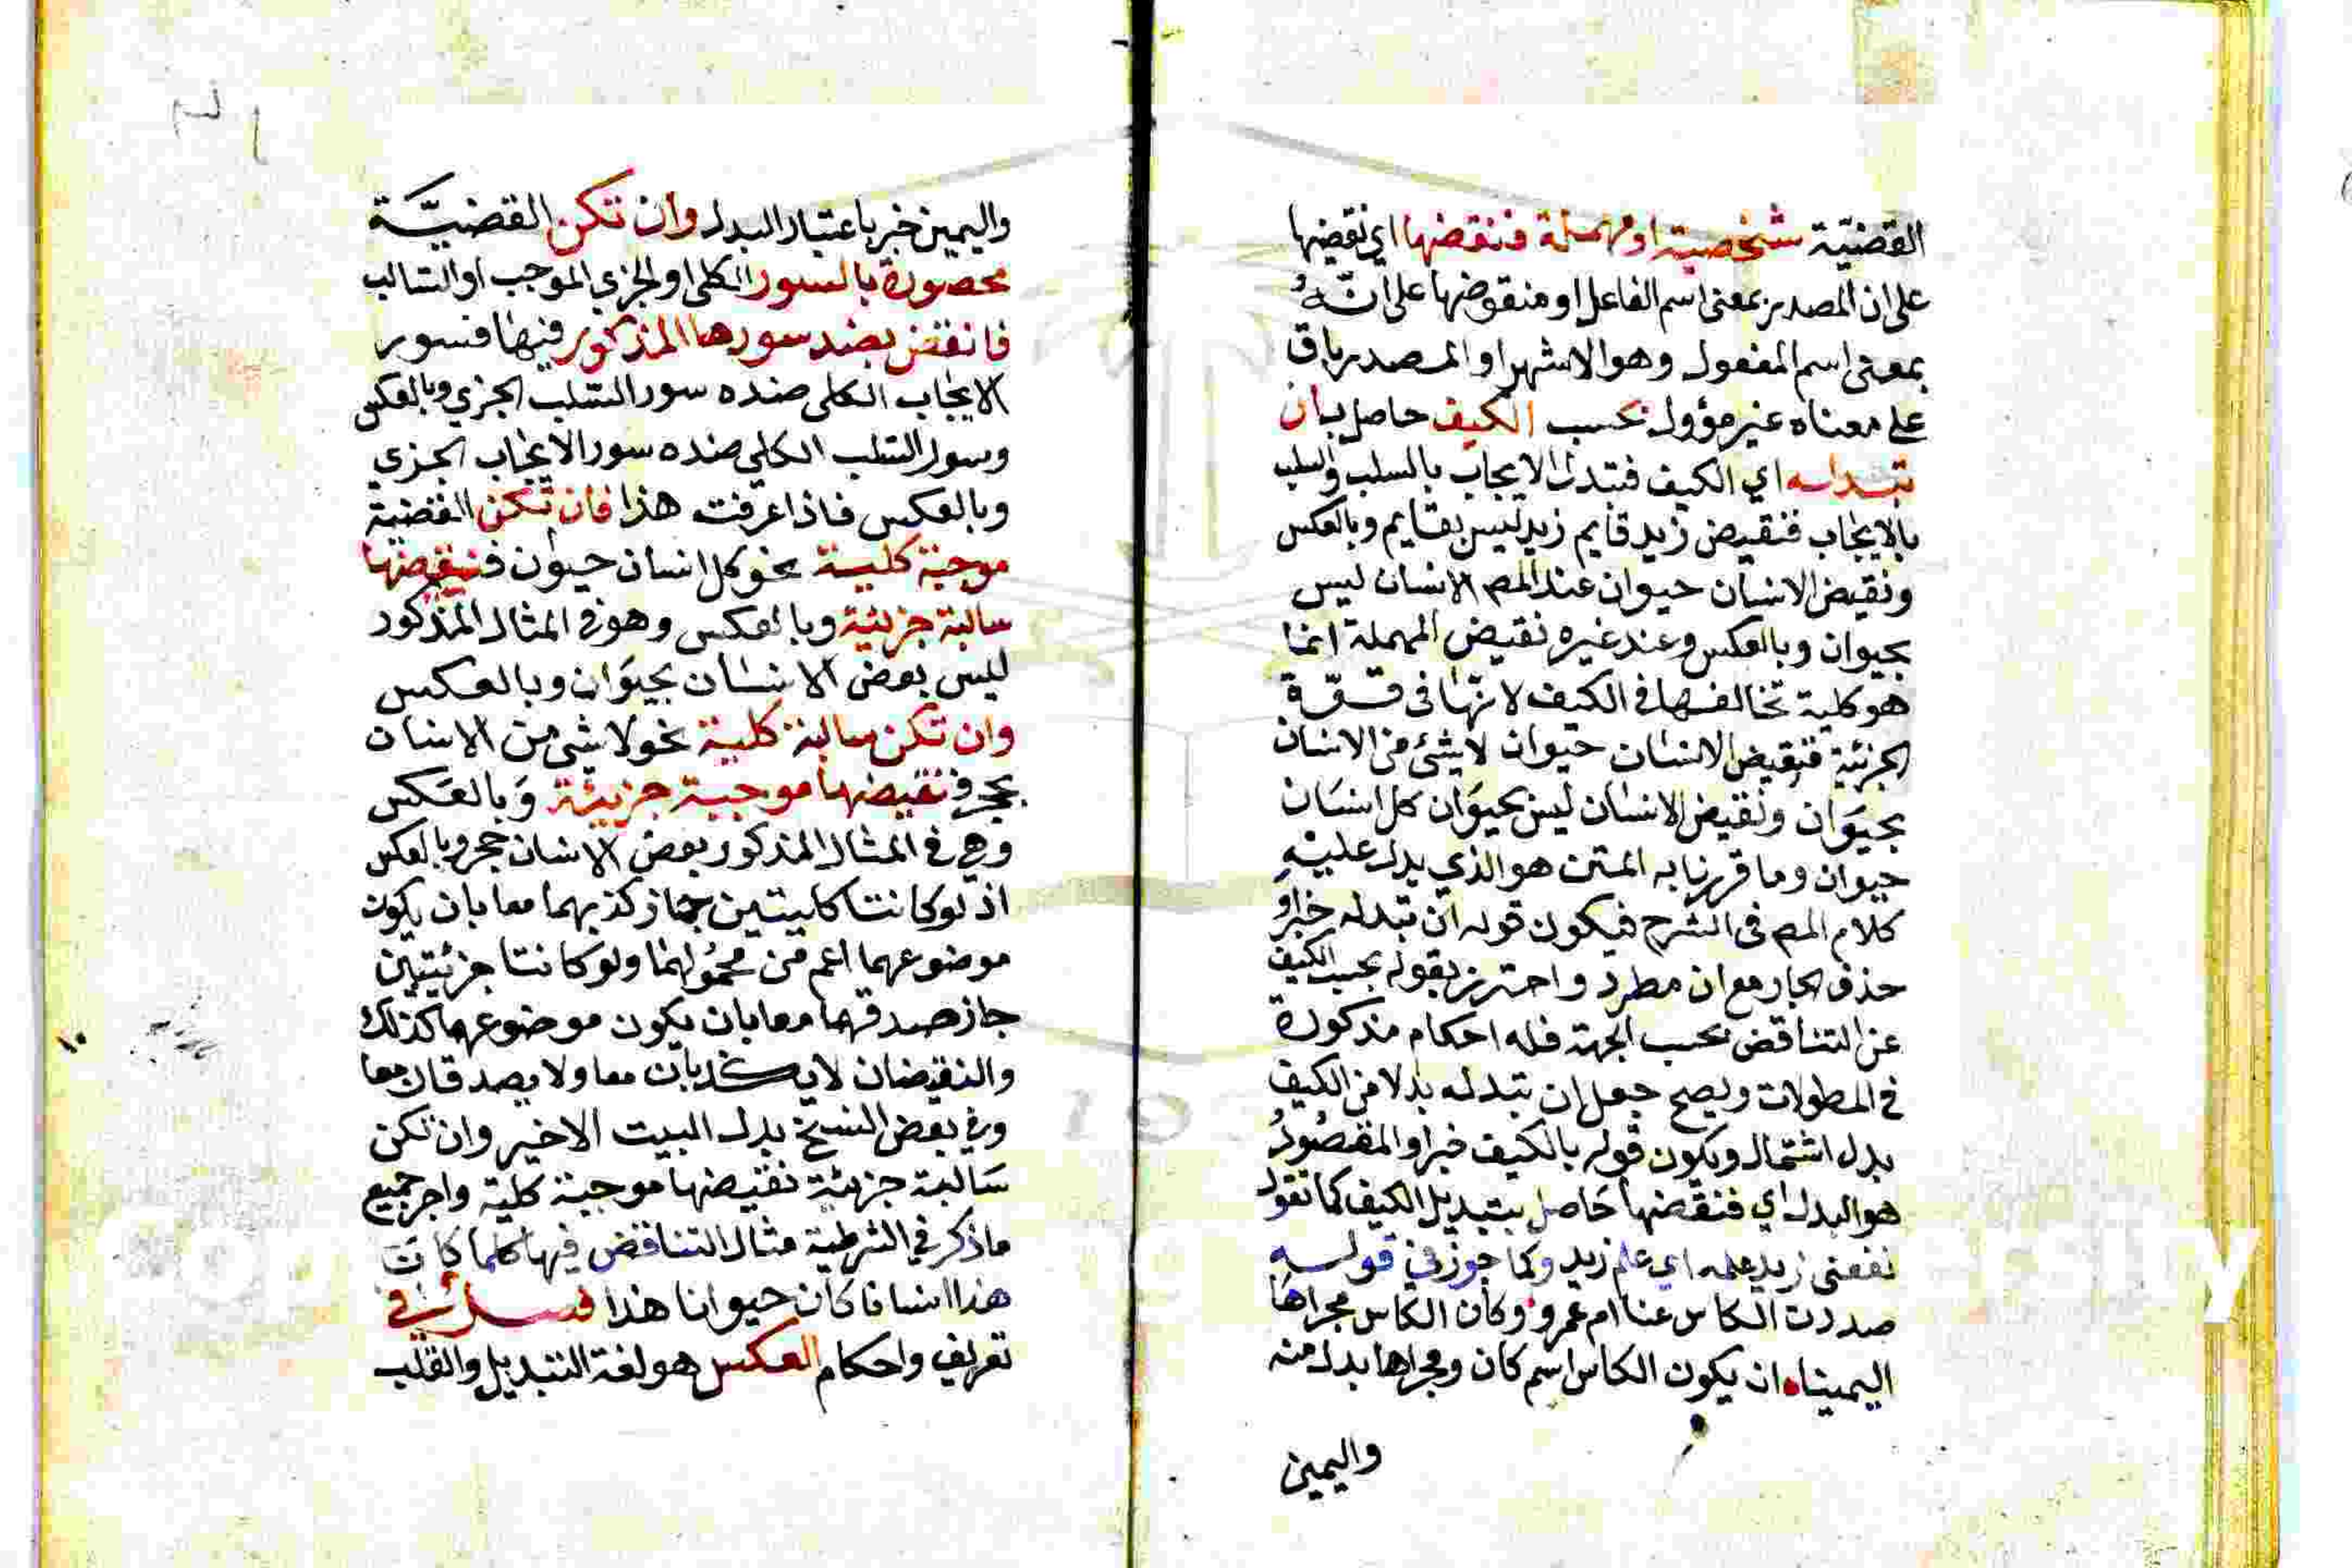 القضيّة شخصية او مهملة فنقضها اي نقيضها
على ان المصدر بمعنى اسم الفاعل او منقوضها على انّهُ
بمعنى اسم المفعول وهو الاشهر او المصدر باق
على معناه غير مؤول بحسب الكيف حاصل بان
تبدله اي الكيف فتبدل الايجاب بالسلب والسلب
بالايجاب فنقيض زيد قايم زيد ليس بقايم وبالعكس
ونقيض الانسان حيوان عند المص الانسان ليس
بحيوان وبالعكس وعند غيره نقيض المهملة انما
هو كلية تخالفها في الكيف لانها في قوّة
الجزئية فنقيض الانسان حيوان لا شئ من الانسان
بحيوان ونقيض الانسان ليس بحيوان كل انسان
حيوان وما قررنا به المتن هو الذي يدل عليه
كلام المص في الشرح فيكون قوله ان تبدله خبرا و
حذف الجار مع ان مطرد واحترز بقوله بحسب الكيف
عن التناقض بحسب الجهة فله احكام مذكورة
في المطولات ويصح جعل ان تبدله بدلا من الكيف
بدل اشتمال ويكون قوله بالكيف خبرا والمقصُودُ
هو البدل اي فنقضها حَاصل بتبديل الكيف كما تقول
نفعني زيد علمه اي علم زيد وكما جوز في قوله
صددت الكاس عنا ام عمرو وكان الكاس مجراها
اليمينا ان يكون الكاس اسم كان ومجراها بدل منه
واليمين
واليمين خبر باعتبار البدل وان تكن القضيّة
محصورة بالسور الكلي او الجزي الموجب او السالب
فانقض بضد سورها المذكور فيها فسور
الايجاب الكلى ضده سور السلب الجزي وبالعكس
وسور السلب الكلي ضده سور الايجاب الجزي
وبالعكس فاذا عرفت هذا فان تكن القضية
موجبة كلية نحو كل انسان حيوان فنقيضها
سالبة جزئية وبالعكس وهو في المثال المذكور
ليس بعض الانسان بحيَوان وبالعكس
وان تكن سالبة كلية نحو لا شي من الانسان
بحجر فنقيضها موجبة جزئية وَبالعَكس
وهي في المثال المذكور بعض الانسان حجر وبالعكس
اذ لو كانتا كليتين جاز كذبهما معا بان يكون
موضوعهما اعم من محمُولهما ولو كانتا جزئيتين
جاز صدقهما معا بان يكون موضوعهما كذلك
والنقيضان لا يكذبان معا ولا يصدقان معا
وفي بعض النسخ بدل البيت الاخير وان تكن
سَالبة جزئية نقيضها موجبة كلية واجر جميع
ما ذكر في الشرطية مثال التناقض فيها كلما كان
هذا انسانا كان حيوانا هذا فصل في
تعريف واحكام العكس هو لغة التبديل والقلب